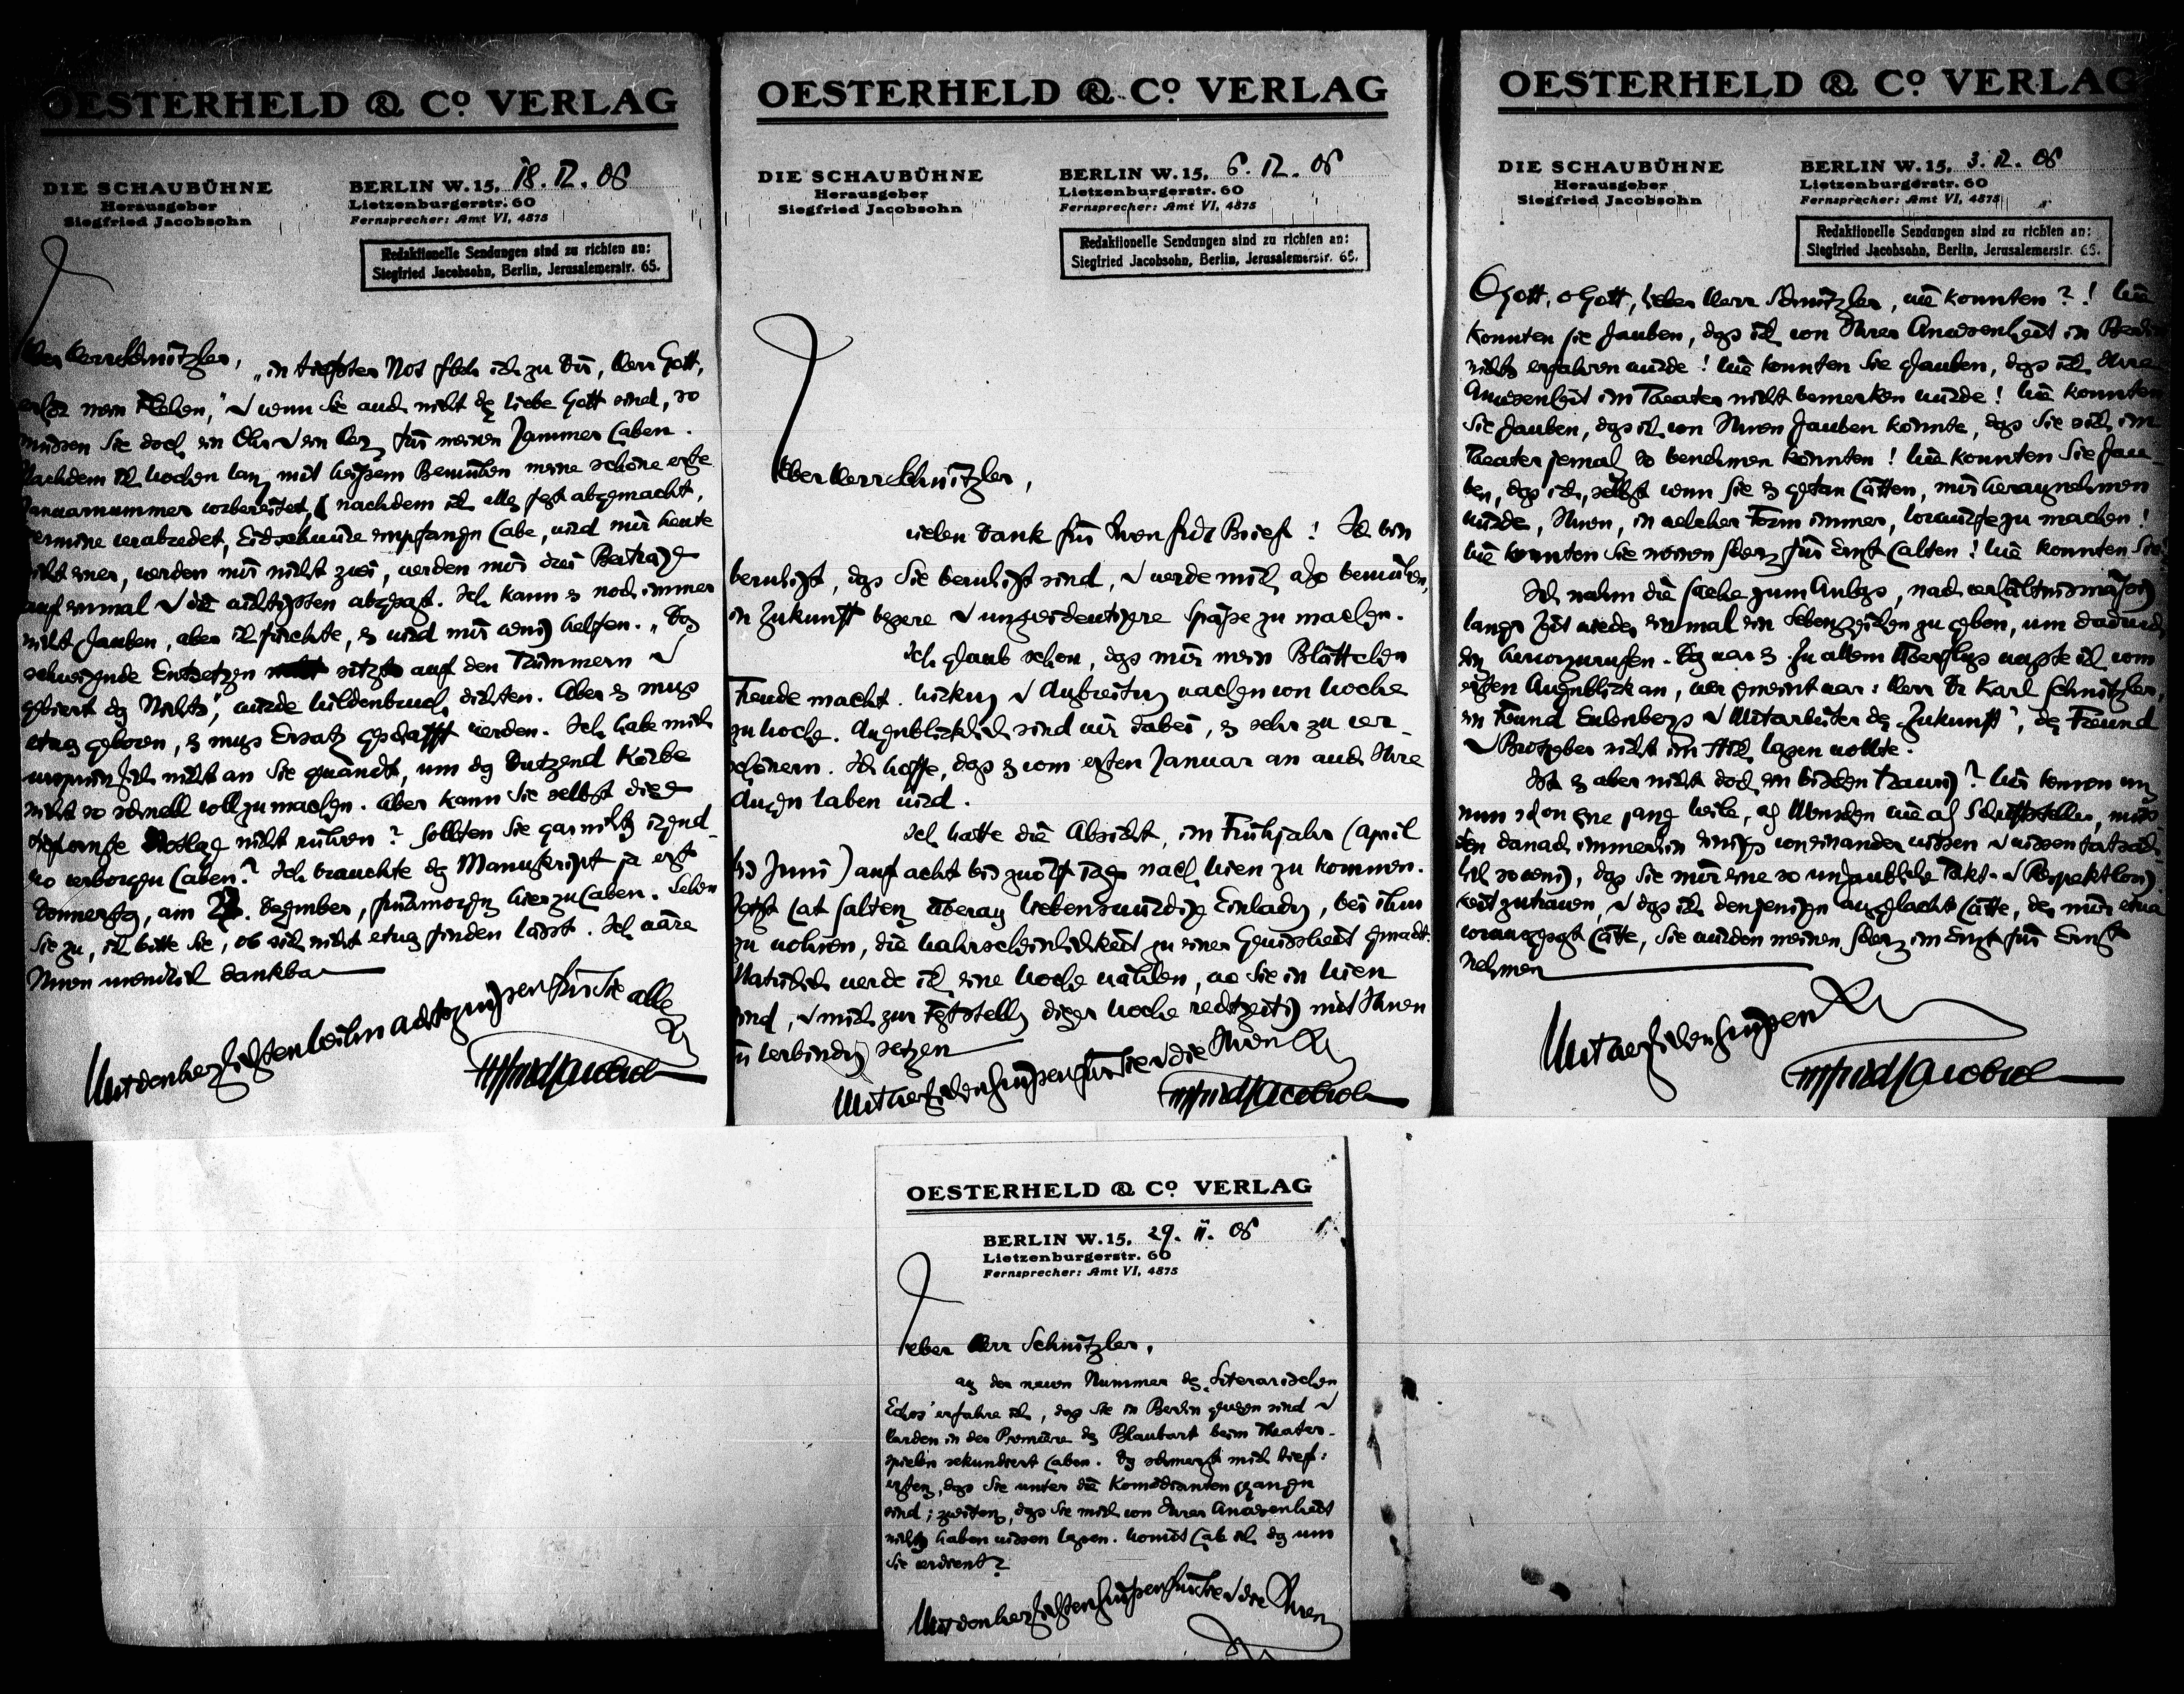 OESTERHELD & Co VERLAG
DIE SCHAUBÜHNE
Herausgeber
Siegfried Jacobsohn
BERLIN W. 15, 18. 12. 06
Lietzenburgerstr. 60
Fernsprecher: Amt VI, 4875
Redaktionelle Sendungen sind zu richten an:
Siegfried Jacobsohn, Berlin, Jerusalemerstr. 65.
Lieber Herr Schnitzler, „in tiefster Not fleh ich zu Dir, Herr Gott,
erhör mein Flehen,“ u wenn Sie auch nicht der liebe Gott sind, so
müssen Sie doch ein Ohr u ein Herz für meinen Jammer haben.
Nachdem ich Wochen lang mit heißem Bemühen meine schöne erste
Januarnummer vorbereitet, nachdem ich alles fest abgemacht,
Termine verabredet, Eidschwüre empfangen habe, wird mir heute
nicht einer, werden mir nicht zwei, werden mir drei Beiträge
auf einmal u die wichtigsten abgesagt. Ich kann es noch immer
nicht glauben, aber ich fürchte, es wird mir wenig helfen. „Das
schweigende Entsetzen sitzt auf den Trümmern u
gebiert das Nichts“, würde Wildenbruch dichten. Aber es muss
etwas geboren, es muss Ersatz geschafft werden. Ich habe mich
ursprünglich nicht an Sie gewandt, um das Dutzend Körbe
nicht so schnell voll zu machen. Aber kann Sie selbst diese
Notlage nicht rühren? Sollten Sie gar nichts irgend-
wo verborgen haben? Ich brauchte das Manuskript ja erst
Donnerstag, am 27. Dezember, frühmorgens hier zu haben. Sehen
Sie zu, ich bitte Sie, ob sich nicht etwas finden lässt. Ich wäre
Ihnen unendlich dankbar
Mit den herzlichsten Weihnachtsgrüßen für Sie alle
Ihr
Siegfried Jacobsohn
OESTERHELD & Co VERLAG
DIE SCHAUBÜHNE
Herausgeber
Siegfried Jacobsohn
BERLIN W. 15, 6. 12. 06
Lietzenburgerstr. 60
Fernsprecher: Amt VI, 4875
Redaktionelle Sendungen sind zu richten an:
Siegfried Jacobsohn, Berlin, Jerusalemerstr. 65.
Lieber Herr Schnitzler,
vielen Dank für Ihren Brief! Ich bin
beruhigt, dass Sie beruhigt sind, u werde mich also bemühen,
in Zukunft bessere u unzweideutigere Späße zu machen.
Ich glaube schon, dass mir mein Blättchen
Freude macht. Wirkung u Verbreitung wachsen von Woche
zu Woche. Augenblicklich sind wir dabei, es sehr zu ver-
schönern. Ich hoffe, dass es vom ersten Januar an auch Ihre
Augen laben wird.
Ich hatte die Absicht, im Frühjahr (April
bis Juni) auf acht bis zwölf Tage nach Wien zu kommen.
Jetzt hat Saltens überaus liebenswürdige Einladung, bei ihm
zu wohnen, die Wahrscheinlichkeit zu einer Gewissheit gemacht.
Natürlich werde ich eine Woche wählen, wo Sie in Wien
sind, u mich zur Feststellung dieser Woche rechtzeitig mit Ihnen
in Verbindung setzen
Mit herzlichen Grüßen für Sie u die Ihren Ihr
Siegfried Jacobsohn
OESTERHELD & Co VERLAG
DIE SCHAUBÜHNE
Herausgeber
Siegfried Jacobsohn
BERLIN W. 15, 3. 12. 06
Lietzenburgerstr. 60
Fernsprecher: Amt VI, 4875
Redaktionelle Sendungen sind zu richten an:
Siegfried Jacobsohn, Berlin, Jerusalemerstr. 65.
O Gott, o Gott, lieber Herr Schnitzler, wie konnten?! Wie
konnten Sie glauben, dass ich von Ihrer Anwesenheit in Berlin
nichts erfahren würde! Wie konnten Sie glauben, dass ich Ihre
Anwesenheit im Theater nicht bemerken würde! Wie konnten
Sie glauben, dass ich von Ihnen glauben könnte, dass Sie sich im
Theater jemals so benehmen könnten! Wie konnten Sie glau-
ben, dass ich, selbst wenn Sie es getan hätten, mir herausnehmen
würde, Ihnen, in welcher Form immer, Vorwürfe zu machen!
Wie konnten Sie meinen Scherz für Ernst halten! Wie konnten Sie!
Ich nahm die Sache zum Anlass, nach verhältnismäßig
langer Zeit wieder einmal ein Lebenszeichen zu geben, um dadurch
eins hervorzurufen. Das war es. Zu allem Überfluss wusste ich vom
ersten Augenblick an, wer gemeint war: Herr Dr Karl Schnitzler,
ein Freund Eulenbergs u Mitarbeiter der „Zukunft“, der Freund
u Brotgeber nicht im Stich lassen wollte.
Ist es aber nicht doch ein bisschen traurig? Wir kennen uns
nun schon eine ganze Weile, als Menschen wie als Schriftsteller, müss-
ten danach immerhin einiges voneinander wissen u wissen tatsäch-
lich so wenig, dass Sie mir eine so unglaubliche Takt- u Respektlosig-
keit zutrauen, u dass ich denjenigen ausgelacht hätte, der mir etwa
vorausgesagt hätte, Sie würden meinen Scherz im Ernst für Ernst
nehmen
Mit herzlichen Grüßen Ihr
Siegfried Jacobsohn
OESTERHELD & Co VERLAG
BERLIN W. 15, 29. 11. 06
Lietzenburgerstr. 60
Fernsprecher: Amt VI, 4875
Lieber Herr Schnitzler,
aus der neuen Nummer des „Literarischen
Echos“ erfahre ich, dass Sie in Berlin gewesen sind u
Harden in der Premiere des Blaubart beim Theater-
spielen sekundiert haben. Das schmerzt mich tief:
erstens, dass Sie unter die Komödianten gegangen
sind; zweitens, dass Sie mich von Ihrer Anwesenheit
nichts haben wissen lassen. Womit hab ich das um
Sie verdient?
Mit den herzlichsten Grüßen für Sie u die Ihren
Ihr